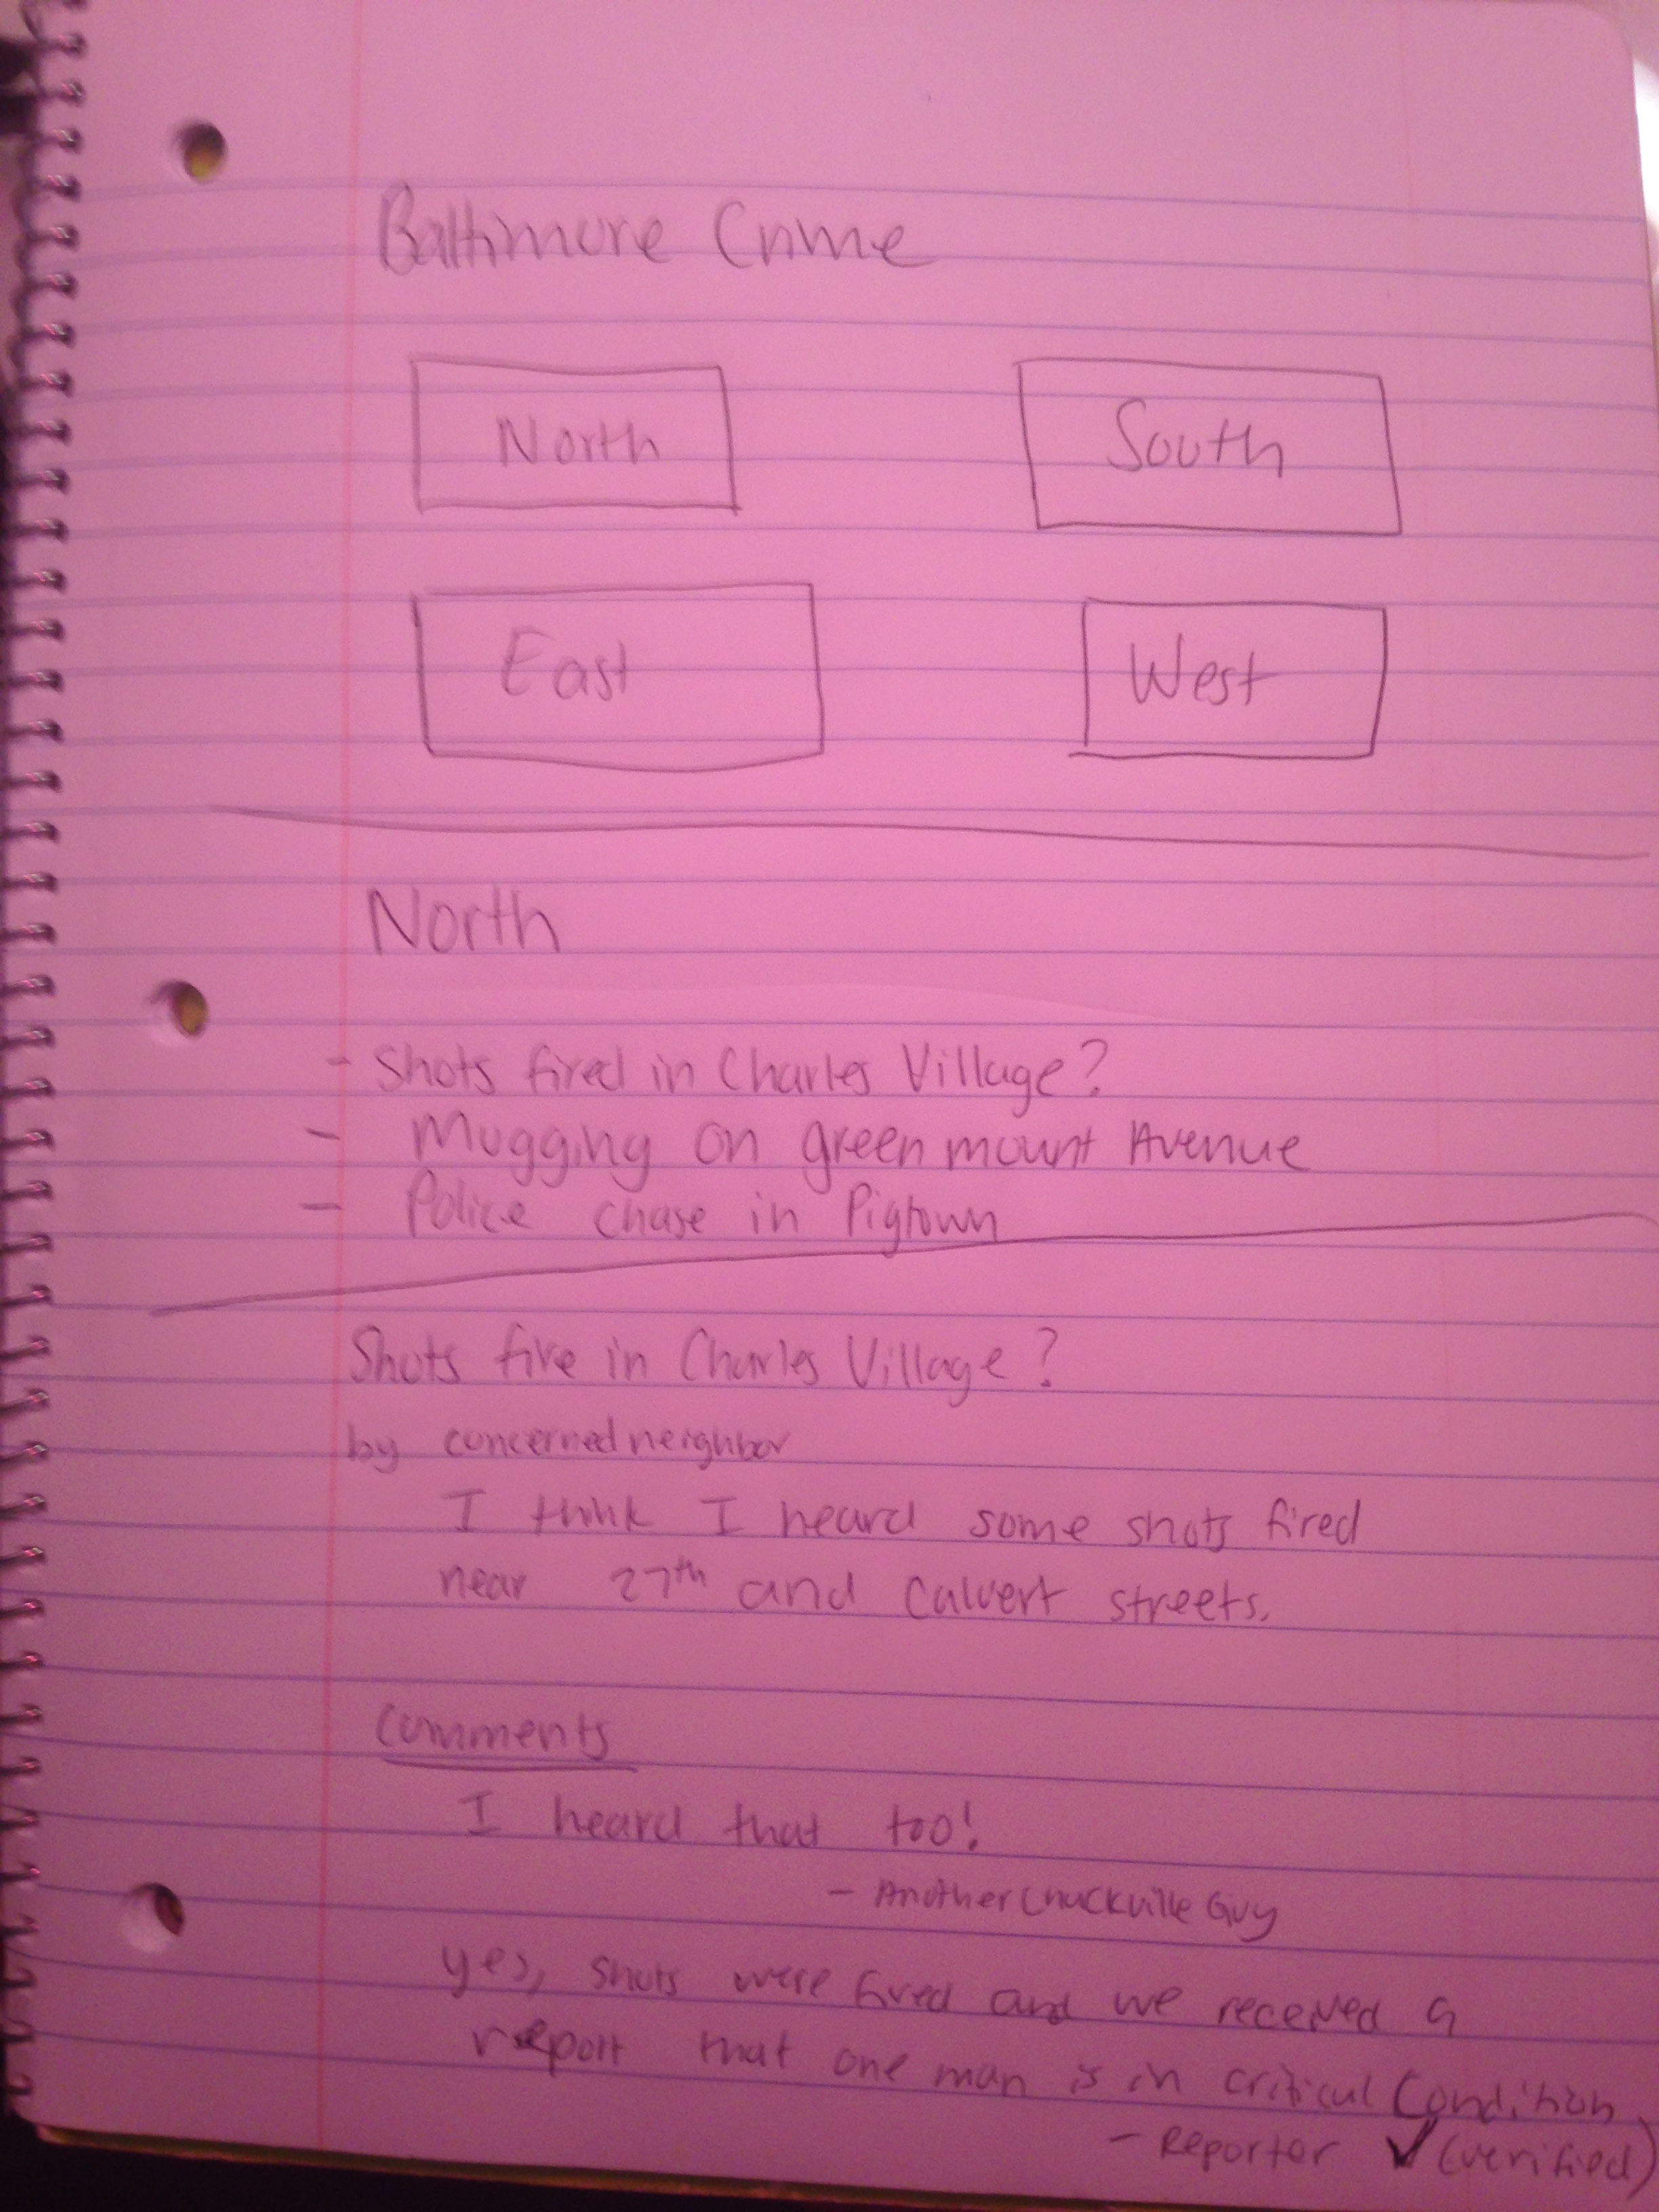 Baltimore Crime
North South
East West
North
- Shots fired in Charles Village?
- Mugging on greenmount Avenue
- Police chase in Pigtown
Shots fire in Charles Village?
by concernedneighbor
I think I heard some shots fired
near 27th and Calvert streets.
Comments
I heard that too!
- AnotherChuckvilleGuy
yes, shots were fired and we received a
report that one man is in critical Condition.
- Reporter ✓ (verified)